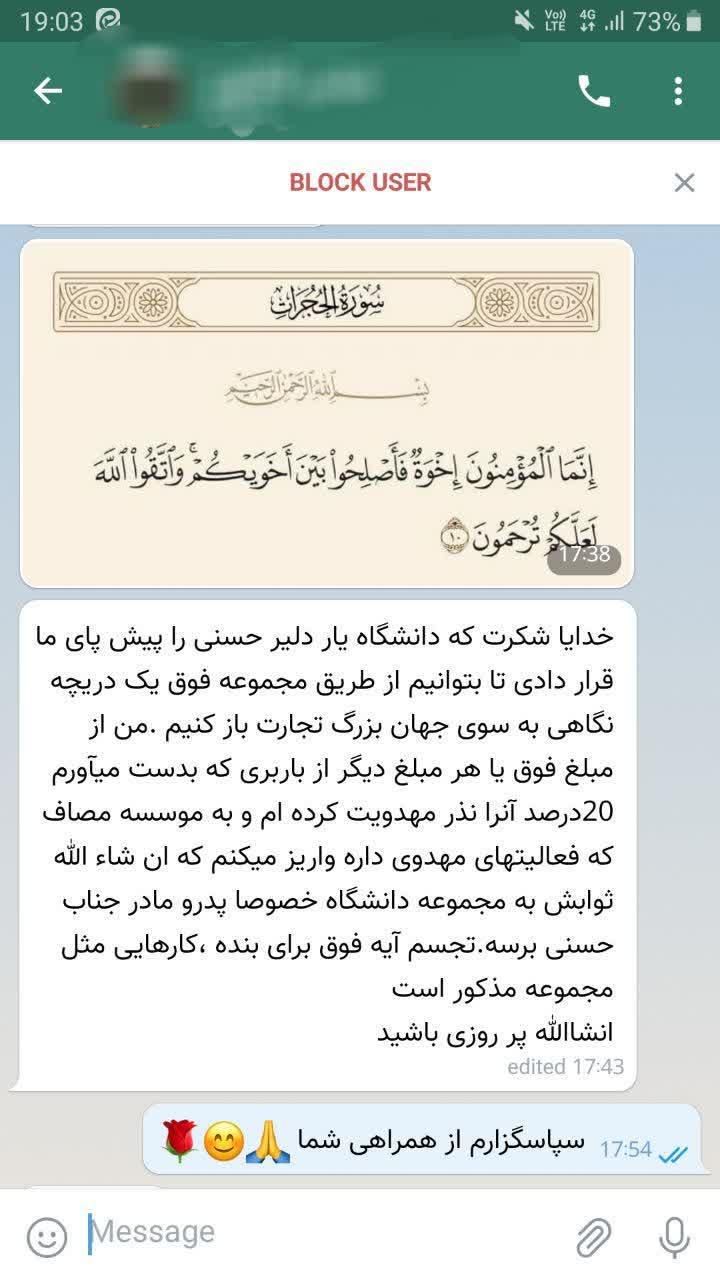 19:03
Vo)) LTE 4G 73%
BLOCK USER
سُورَةُ الحُجُرَاتِ
بِسْمِ اللَّهِ الرَّحْمَٰنِ الرَّحِيمِ
إِنَّمَا ٱلْمُؤْمِنُونَ إِخْوَةٌ فَأَصْلِحُوا۟ بَيْنَ أَخَوَيْكُمْ ۚ وَٱتَّقُوا۟ ٱللَّهَ
لَعَلَّكُمْ تُرْحَمُونَ ١٠
17:38
خدایا شکرت که دانشگاه یار دلیر حسنی را پیش پای ما
قرار دادی تا بتوانیم از طریق مجموعه فوق یک دریچه
نگاهی به سوی جهان بزرگ تجارت باز کنیم .من از
مبلغ فوق یا هر مبلغ دیگر از باربری که بدست میآورم
20درصد آنرا نذر مهدویت کرده ام و به موسسه مصاف
که فعالیتهای مهدوی داره واریز میکنم که ان شاء الله
ثوابش به مجموعه دانشگاه خصوصا پدرو مادر جناب
حسنی برسه.تجسم آیه فوق برای بنده ،کارهایی مثل
مجموعه مذکور است
انشاالله پر روزی باشید
edited 17:43
سپاسگزارم از همراهی شما🙏😊🌹
17:54
Message